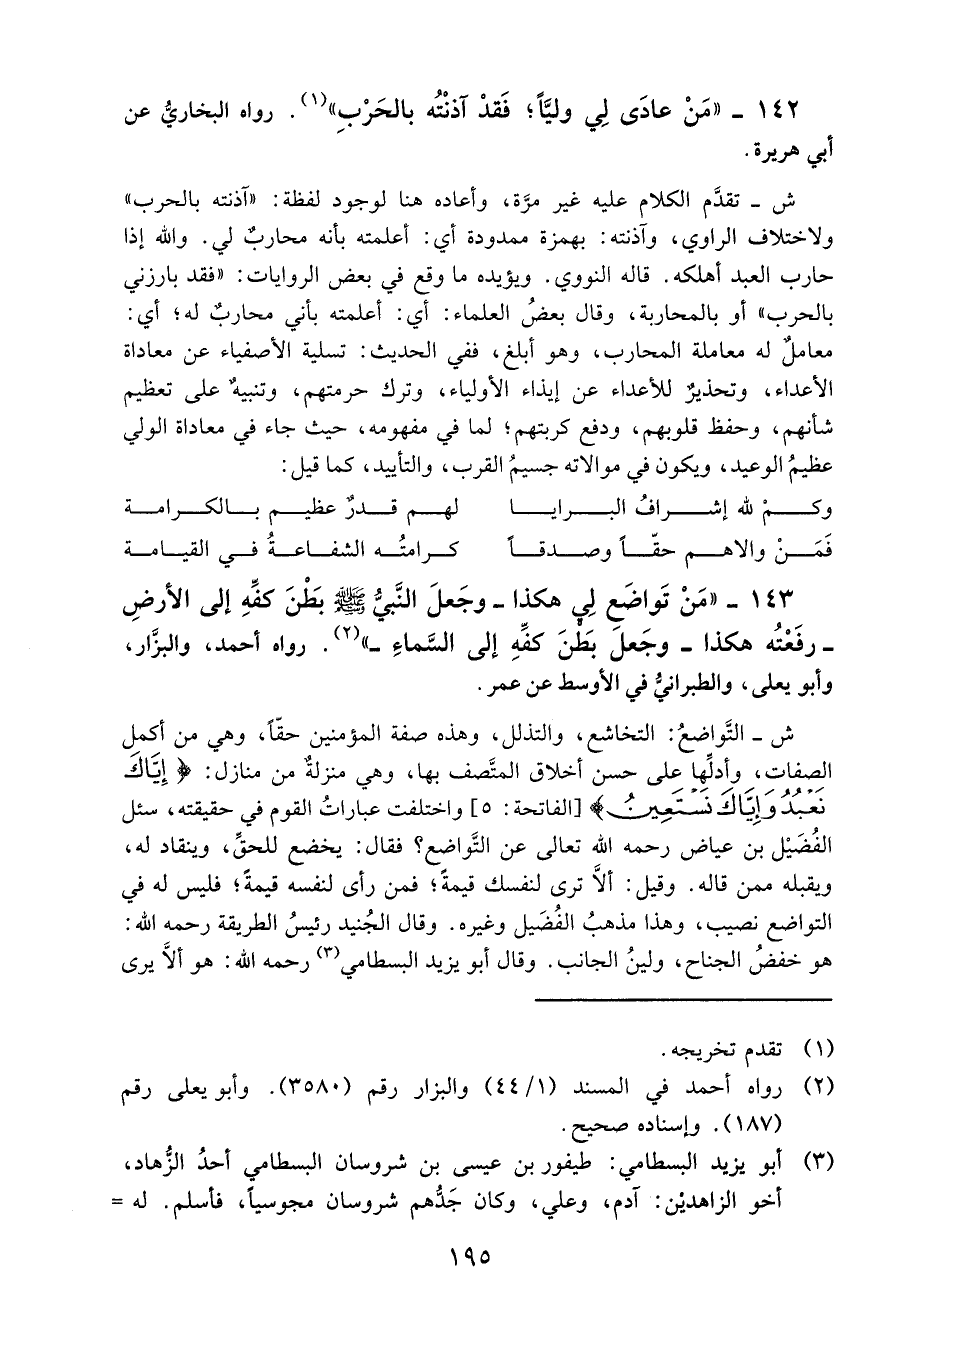 ١٤٢ ـ «مَنْ عادَى لِي وليَّاً؛ فَقدْ آذنْتُه بالحَرْبِ»(١). رواه البخاريُّ عن
أبي هريرة.
ش ـ تقدَّم الكلام عليه غير مرَّة، وأعاده هنا لوجود لفظة: «آذنته بالحرب»
ولاختلاف الراوي، وآذنته: بهمزة ممدودة أي: أعلمته بأنه محاربٌ لي. والله إذا
حارب العبد أهلكه. قاله النووي. ويؤيده ما وقع في بعض الروايات: «فقد بارزني
بالحرب» أو بالمحاربة، وقال بعضُ العلماء: أي: أعلمته بأني محاربٌ له؛ أي:
معاملٌ له معاملة المحارب، وهو أبلغ، ففي الحديث: تسلية الأصفياء عن معاداة
الأعداء، وتحذيرٌ للأعداء عن إيذاء الأولياء، وترك حرمتهم، وتنبيهٌ على تعظيم
شأنهم، وحفظ قلوبهم، ودفع كربتهم؛ لما في مفهومه، حيث جاء في معاداة الولي
عظيمُ الوعيد، ويكون في موالاته جسيمُ القرب، والتأييد، كما قيل:
وكمْ لله إشرافُ البرايا لهم قدرٌ عظيم بالكرامة
فَمَنْ والاهم حقّاً وصدقاً كرامتُه الشفاعةُ في القيامة
١٤٣ ـ «مَنْ تَواضَع لِي هكذا ـ وجَعلَ النَّبيُّ ﷺ بَطْنَ كفِّه إلى الأرضِ
ـ رفَعْتُه هكذا ـ وجعلَ بَطْنَ كفِّهِ إلى السَّماءِ ـ»(٢). رواه أحمد، والبزَّار،
وأبو يعلى، والطبرانيُّ في الأوسط عن عمر.
ش ـ التَّواضعُ: التخاشع، والتذلل، وهذه صفة المؤمنين حقّاً، وهي من أكمل
الصفات، وأدلِّها على حسن أخلاق المتَّصف بها، وهي منزلةٌ من منازل: ﴿إِيَّاكَ
نَعْبُدُ وَإِيَّاكَ نَسْتَعِينُ﴾ [الفاتحة: ٥] واختلفت عباراتُ القوم في حقيقته، سئل
الفُضَيْل بن عياض رحمه الله تعالى عن التَّواضع؟ فقال: يخضع للحقِّ، وينقاد له،
ويقبله ممن قاله. وقيل: ألاَّ ترى لنفسك قيمةً؛ فمن رأى لنفسه قيمةً؛ فليس له في
التواضع نصيب، وهذا مذهبُ الفُضَيل وغيره. وقال الجُنيد رئيسُ الطريقة رحمه الله:
هو خفضُ الجناح، ولينُ الجانب. وقال أبو يزيد البسطامي(٣) رحمه الله: هو ألاَّ يرى
(١) تقدم تخريجه.
(٢) رواه أحمد في المسند (٤٤/١) والبزار رقم (٣٥٨٠). وأبو يعلى رقم
(١٨٧). وإسناده صحيح.
(٣) أبو يزيد البسطامي: طيفور بن عيسى بن شروسان البسطامي أحدُ الزُّهاد،
أخو الزاهديْن: آدم، وعلي، وكان جَدُّهم شروسان مجوسياً، فأسلم. له =
١٩٥